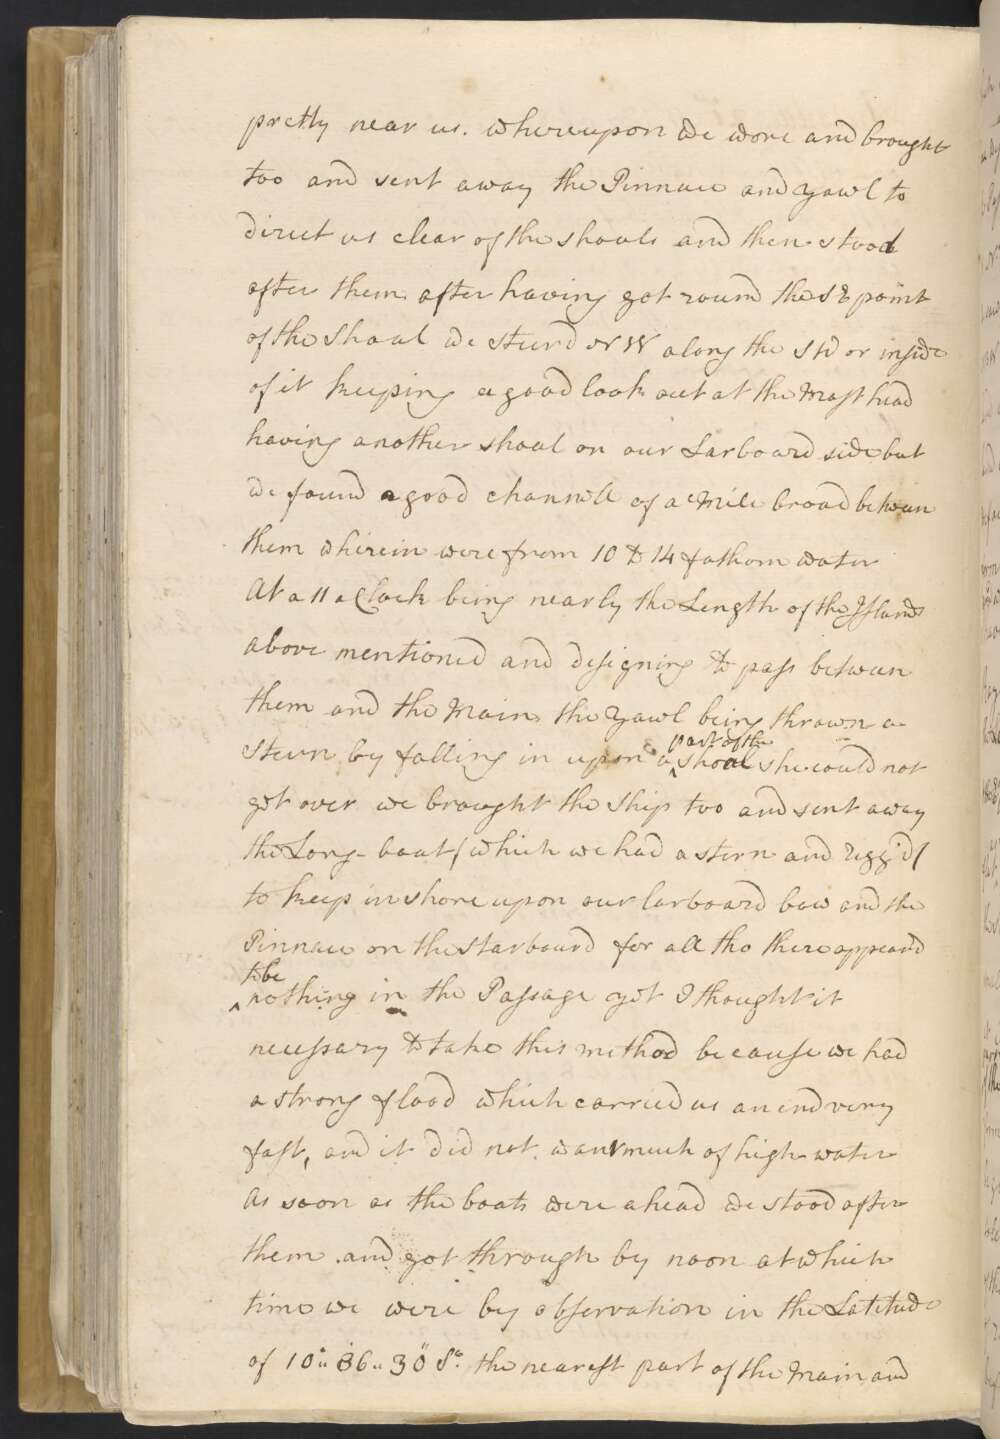 pretty near us. whereupon we wore and brought
too and sent away the Pinnace and yawl to
direct us clear of the shoals and then stood
after them, after having got round the SE point
of the Shoal we steerd NW along the SW or inside
of it keeping a good look out at the Mast head
having another shoal on our Larboard side but
we found a good channell of a Mile broad between
them wherein were from 10 to 14 fathom water
At a 11 oClock being nearly the Length of the Islands
above mentioned and designing to pass between
them and the Main, the yawl being thrown a
part of the
Stern by falling in upon a shoal she could not
get over we brought the Ship too and sent away
the Long-boat (which we had a stern and rigg'd)
to keep in shore upon our larboard bow and the
Pinnace on the starboard for all tho there appeard
to be
nothing in the Passage yet I thought it
necessary to take this method because we had
a strong flood which carried us an end very
fast, and it did not want much of high water
As soon as the boats were ahead we stood after
them and got through by noon at which
time we were by observation in the Latitude
of 10° 36' 30" So. the nearest part of the Main, and